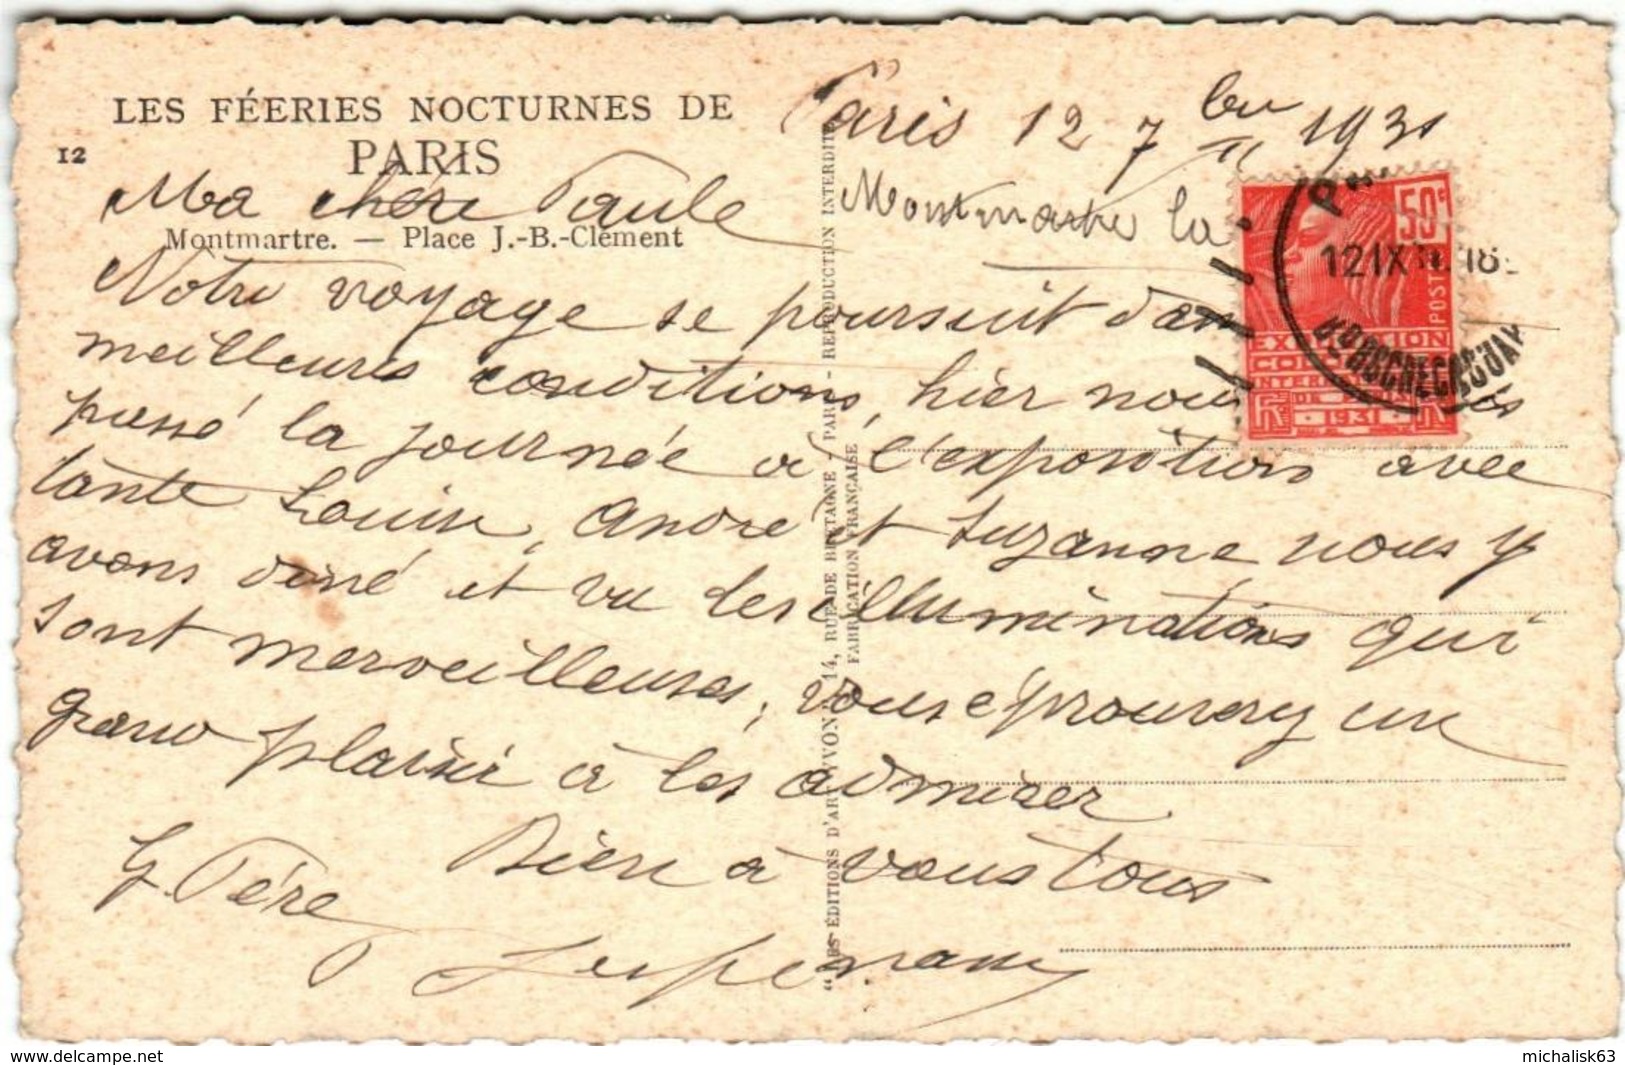 LES FÉERIES NOCTURNES DE
PARIS
12
Montmartre. — Place J.-B.-Clément
Paris 12 7bre 1931
Montmartre la
Ma chère Paule
Notre voyage se poursuit dans
meilleures conditions, hier nous
passé la journée à l'exposition avec
tante Louise, André et Suzanne nous y
avons diné et vu les illuminations qui
sont merveilleuses, vous éprouverez un
grand plaisir à les admirer
Bien à vous tous
G. Père
"LES ÉDITIONS D'ART YVON", 14, RUE DE BRETAGNE - PARIS - REPRODUCTION INTERDITE
FABRICATION FRANÇAISE
50c
POSTES
EXPOSITION
COLONIALE
INTERNATIONALE
DE PARIS
1931
12 IX 18
www.delcampe.net
michalisk63